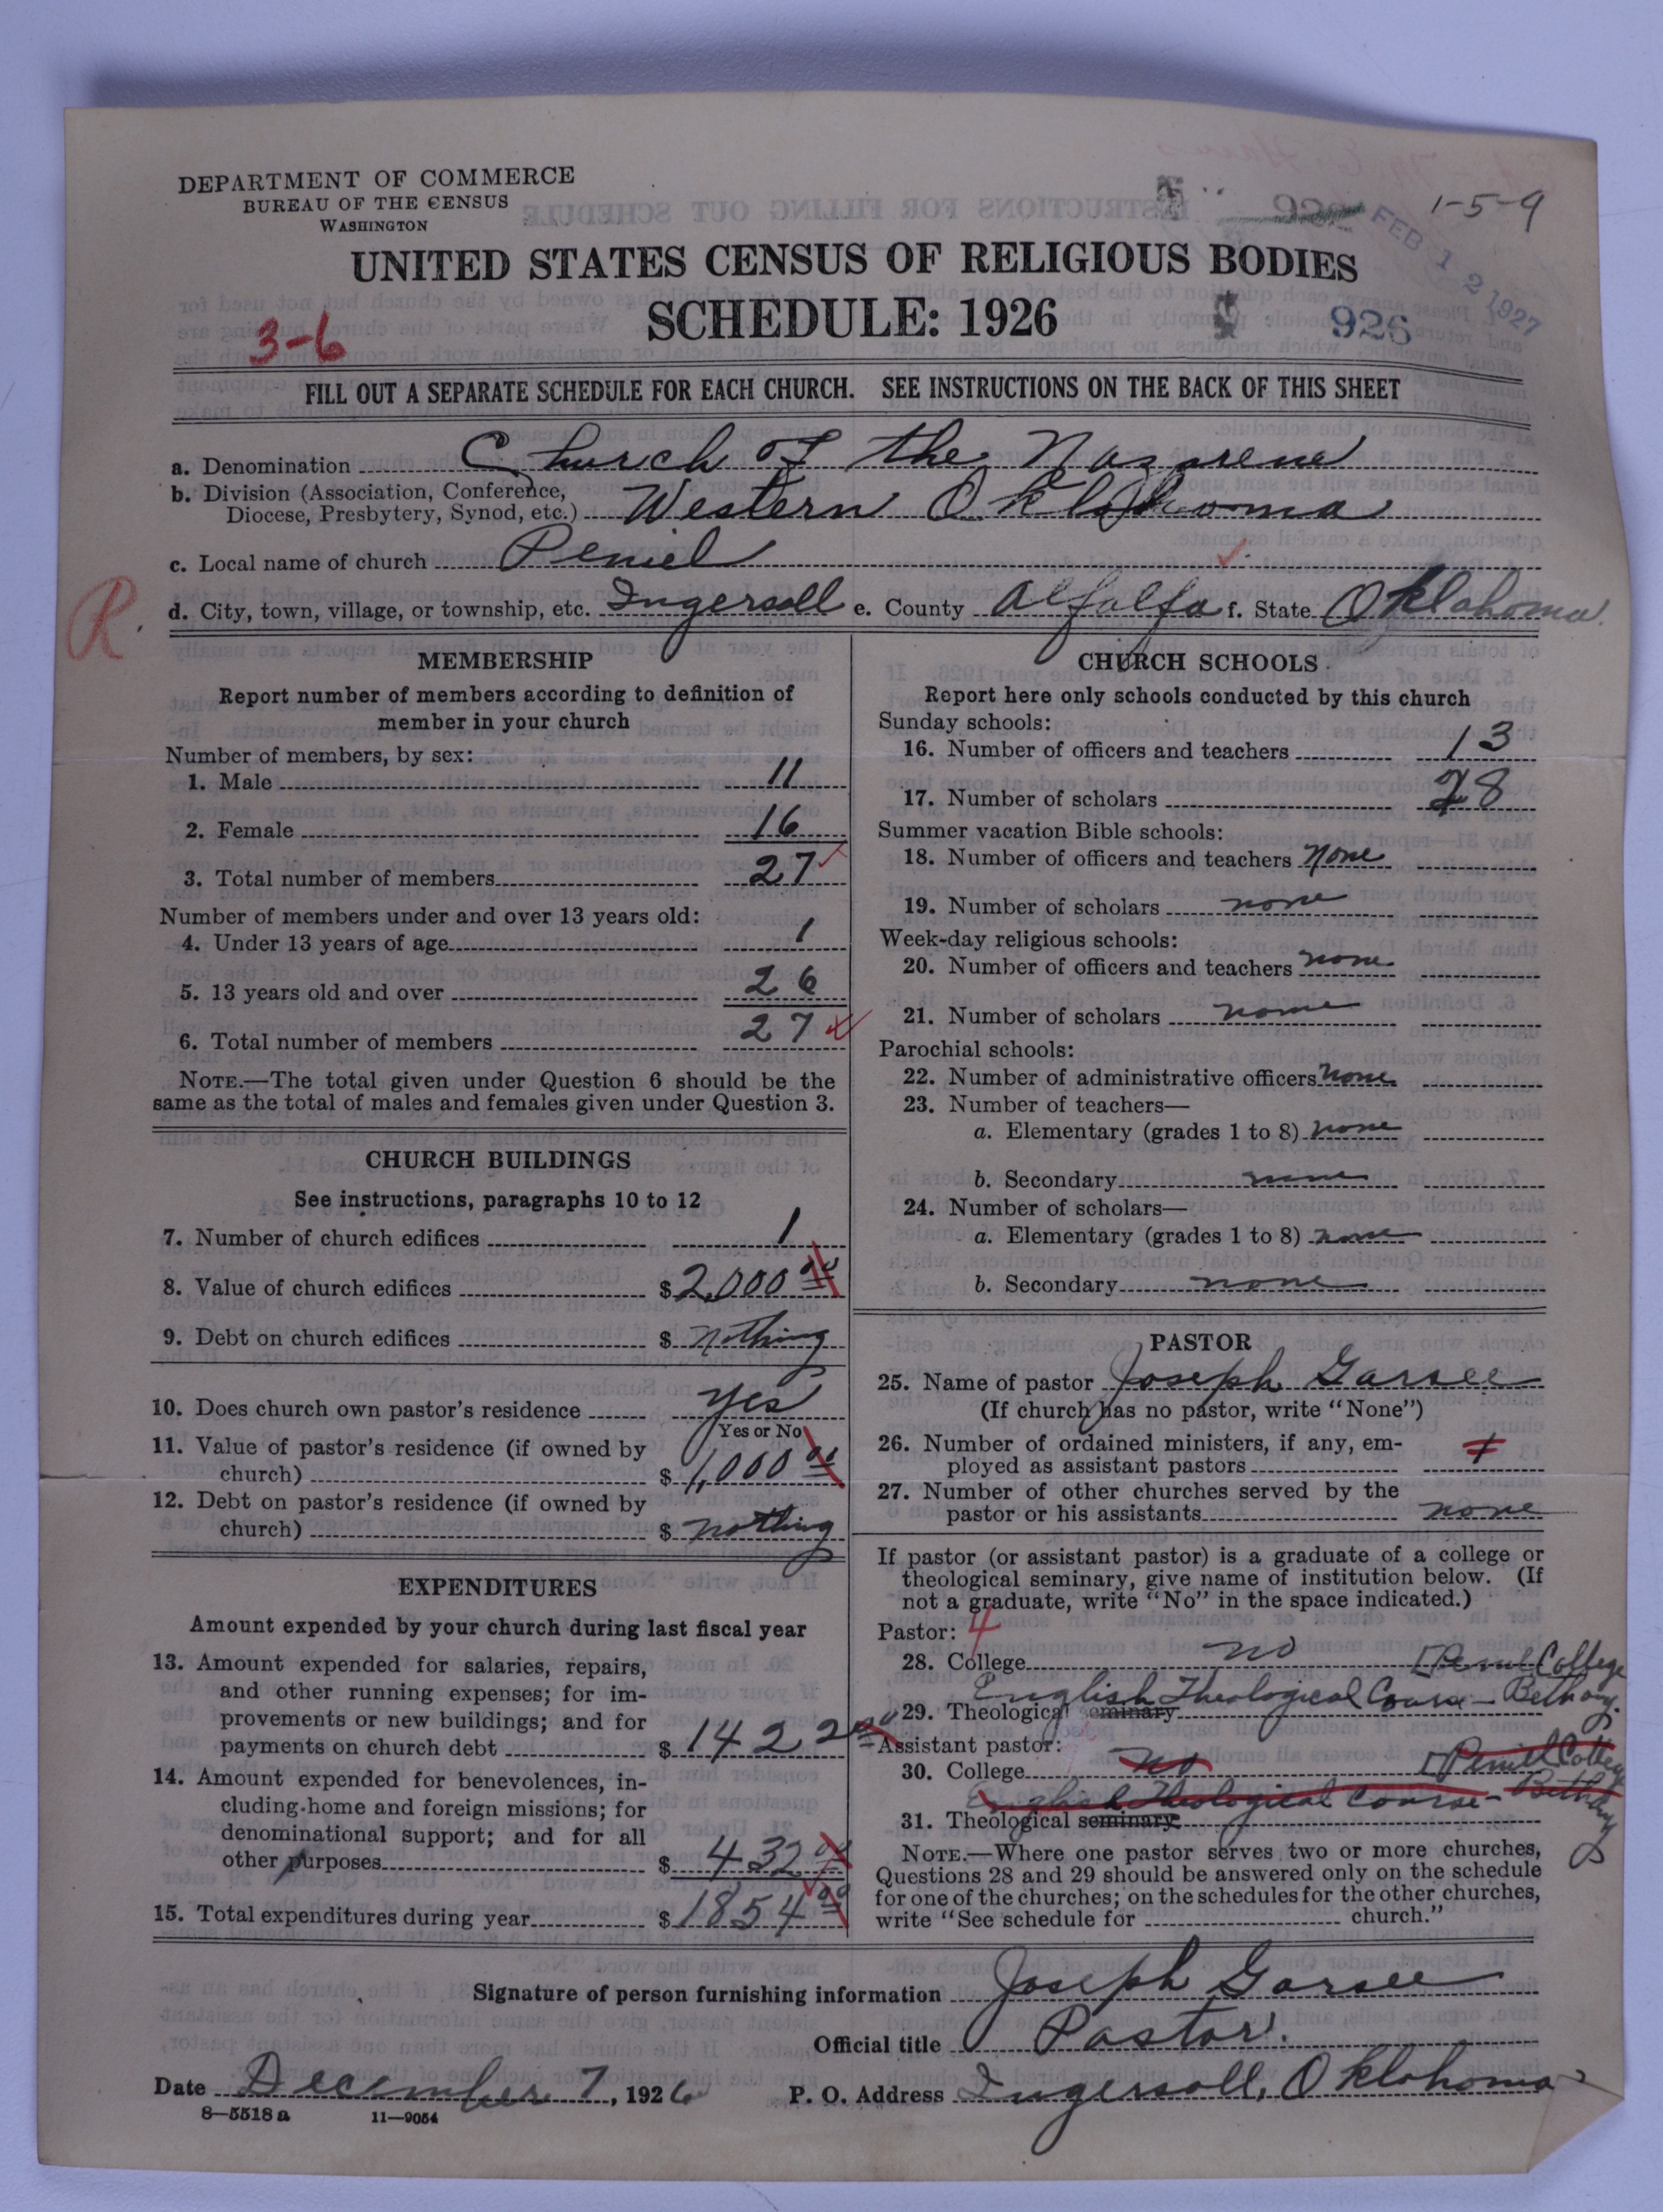 DEPARTMENT OF COMMERCE
BUREAU OF THE CENSUS
WASHINGTON
1-5-9
FEB 12 1927
UNITED STATES CENSUS OF RELIGIOUS BODIES
SCHEDULE: 1926
926
3-6
FILL OUT A SEPARATE SCHEDULE FOR EACH CHURCH. SEE INSTRUCTIONS ON THE BACK OF THIS SHEET
a. Denomination Church of the Nazarene
b. Division (Association, Conference, Diocese, Presbytery, Synod, etc.) Western Oklahoma
c. Local name of church Peniel
R.
d. City, town, village, or township, etc. Ingersoll e. County Alfalfa f. State Oklahoma
MEMBERSHIP
Report number of members according to definition of
member in your church
Number of members, by sex:
1. Male 11
2. Female 16
3. Total number of members 27
Number of members under and over 13 years old:
4. Under 13 years of age 1
5. 13 years old and over 26
6. Total number of members 27
NOTE.—The total given under Question 6 should be the
same as the total of males and females given under Question 3.
CHURCH BUILDINGS
See instructions, paragraphs 10 to 12
7. Number of church edifices 1
8. Value of church edifices $ 2,000 00
9. Debt on church edifices $ nothing
10. Does church own pastor's residence yes
Yes or No
11. Value of pastor's residence (if owned by
church) $ 1,000 00
12. Debt on pastor's residence (if owned by
church) $ nothing
EXPENDITURES
Amount expended by your church during last fiscal year
13. Amount expended for salaries, repairs,
and other running expenses; for im-
provements or new buildings; and for
payments on church debt $ 1422 00
14. Amount expended for benevolences, in-
cluding home and foreign missions; for
denominational support; and for all
other purposes $ 432 00
15. Total expenditures during year $ 1854 00
CHURCH SCHOOLS
Report here only schools conducted by this church
Sunday schools:
16. Number of officers and teachers 13
17. Number of scholars 28
Summer vacation Bible schools:
18. Number of officers and teachers none
19. Number of scholars none
Week-day religious schools:
20. Number of officers and teachers none
21. Number of scholars none
Parochial schools:
22. Number of administrative officers none
23. Number of teachers—
a. Elementary (grades 1 to 8) none
b. Secondary none
24. Number of scholars—
a. Elementary (grades 1 to 8) none
b. Secondary none
PASTOR
25. Name of pastor Joseph Garsee
(If church has no pastor, write "None")
26. Number of ordained ministers, if any, em-
ployed as assistant pastors 1
27. Number of other churches served by the
pastor or his assistants none
If pastor (or assistant pastor) is a graduate of a college or
theological seminary, give name of institution below. (If
not a graduate, write "No" in the space indicated.)
Pastor: 4
28. College no [Peniel College
English Theological Course - Bethany
29. Theological seminary
Assistant pastor:
30. College no [Peniel College
English Theological Course - Bethany
31. Theological seminary
NOTE.—Where one pastor serves two or more churches,
Questions 28 and 29 should be answered only on the schedule
for one of the churches; on the schedules for the other churches,
write "See schedule for church."
Signature of person furnishing information Joseph Garsee
Official title Pastor.
Date December 7, 1926 P. O. Address Ingersoll, Oklahoma
8—5518 a 11—9054